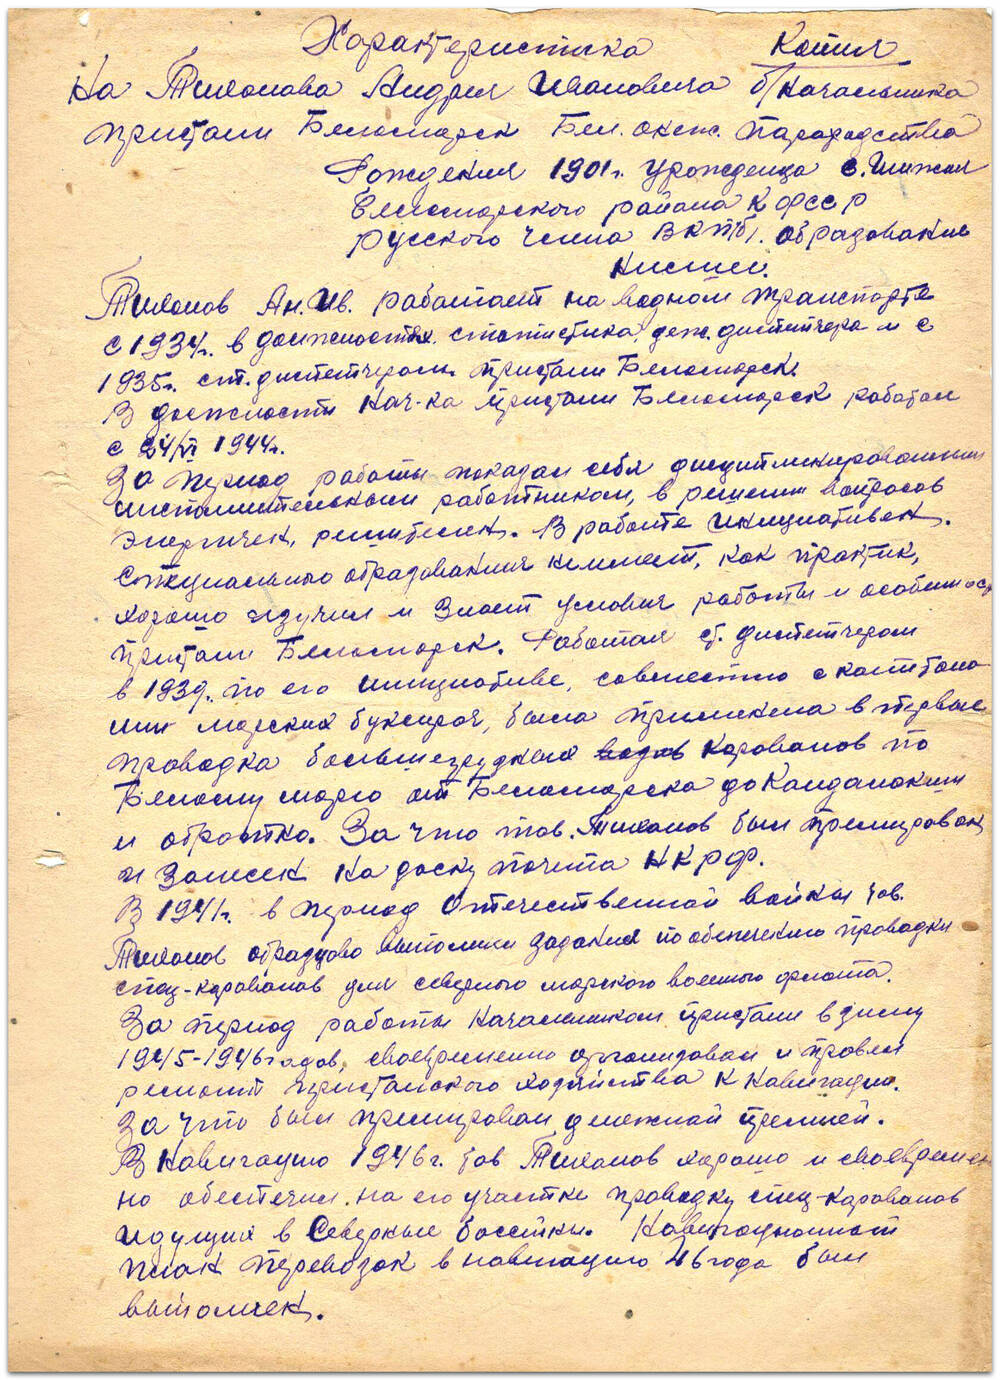 Характеристика Копия
На Тихонова Андрея Ивановича б/начальника
пристани Беломорск Бел. Онеж. Пароходства
Рождения 1901 г. урожденца с. Шижня
Беломорского района КФССР
Русского члена ВКП/б/. образование
низшее.
Тихонов Ан. Ив. работает на водном транспорте
с 1934 г. в должностях статистика, деж. диспетчера и с
1935 г. ст. диспетчером пристани Беломорск
В должности Нач-ка пристани Беломорск работал
с 24/VI 1944 г.
За период работы показал себя дисциплинированным
исполнительным работником, в решении вопросов
энергичен, решителен. В работе инициативен.
Специального образования не имеет, как практик,
хорошо изучил и знает условия работы и особеннос
пристани Беломорск. Работая ст. диспетчером
в 1939 г. по его инициативе, совместно с капитана
ми морских буксиров, была применена впервые
проводка большегрузных караванов по
Белому морю от Беломорска до Кандалакши
и обратно. За что тов. Тихонов был премирован
и Занесен на доску почета НКРФ.
В 1941 г. в период Отечественной войны тов.
Тихонов образцово выполнил задания по обеспечению проводки
спец-караванов для северного морского военного флота.
За период работы Начальником пристани в зиму
1945-1946 годов, своевременно организовал и провел
ремонт пристанского хозяйства к навигации.
За что был премирован денежной премией.
В Навигацию 1946 г. тов Тихонов хорошо и своевремен
но обеспечил на его участке проводку спец-караванов
идущих в Северные бассейны. Навигационный
план перевозок в навигацию 46 года был
выполнен.